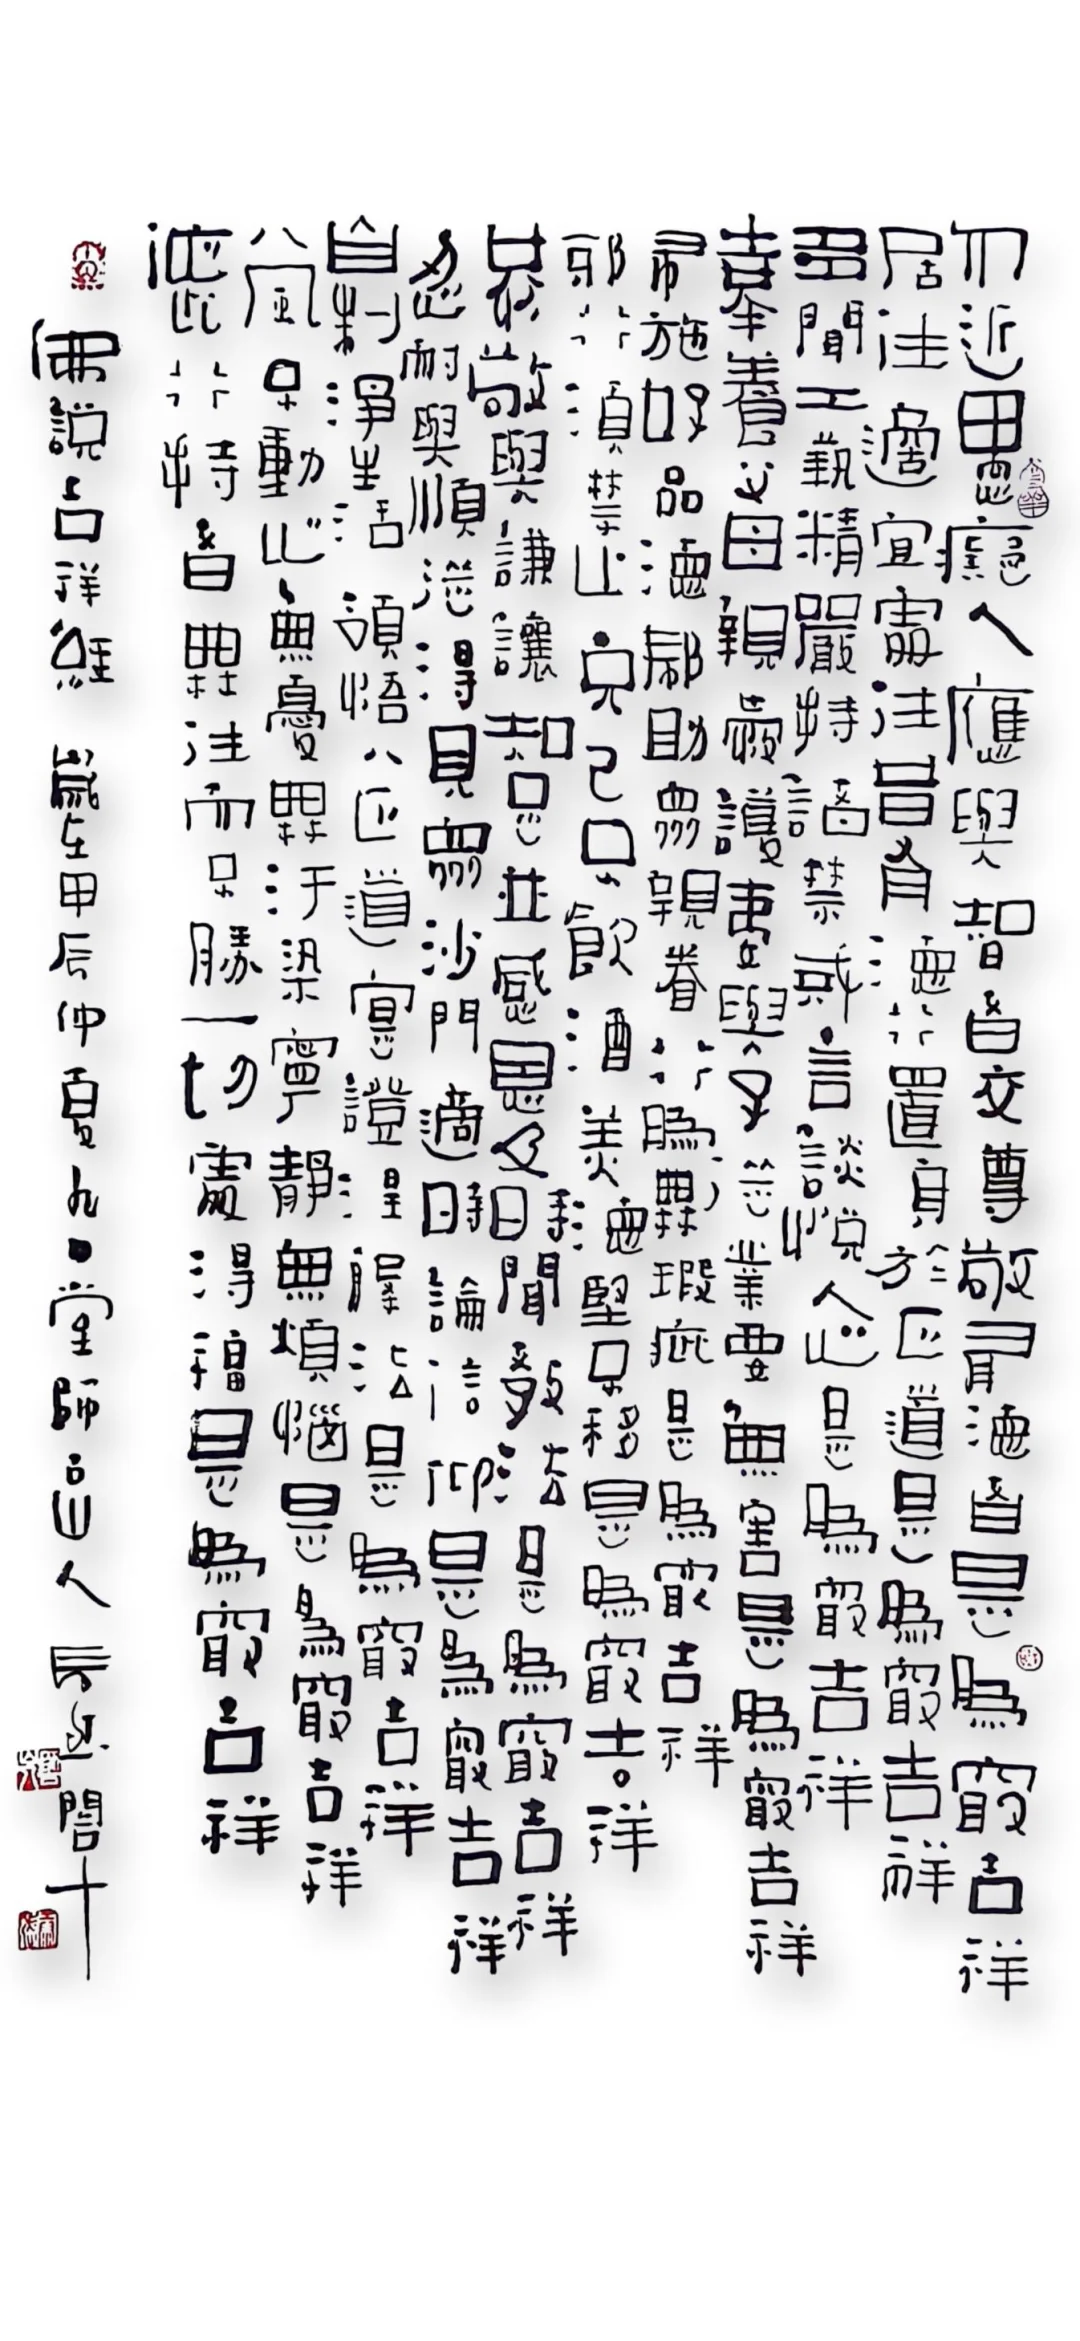 不近愚癡人應與智者交尊敬有德者是為最吉祥
居住適宜處往昔有德行置身於正道是為最吉祥
多聞工藝精嚴持諸禁戒言談悅人心是為最吉祥
奉養父母親愛護妻與子從業要無害是為最吉祥
布施好品德幫助眾親眷行為無瑕疵是為最吉祥
邪行須禁止克己不飲酒美德堅不移是為最吉祥
恭敬與謙讓知足並感恩及時聞教法是為最吉祥
忍耐與順從得見眾沙門適時論信仰是為最吉祥
自制淨生活領悟八正道實證涅槃法是為最吉祥
八風不動心無憂無污染寧靜無煩惱是為最吉祥
依此行持者無往而不勝一切處得福是為最吉祥
佛說吉祥經 歲在甲辰仲夏九日堂師山人